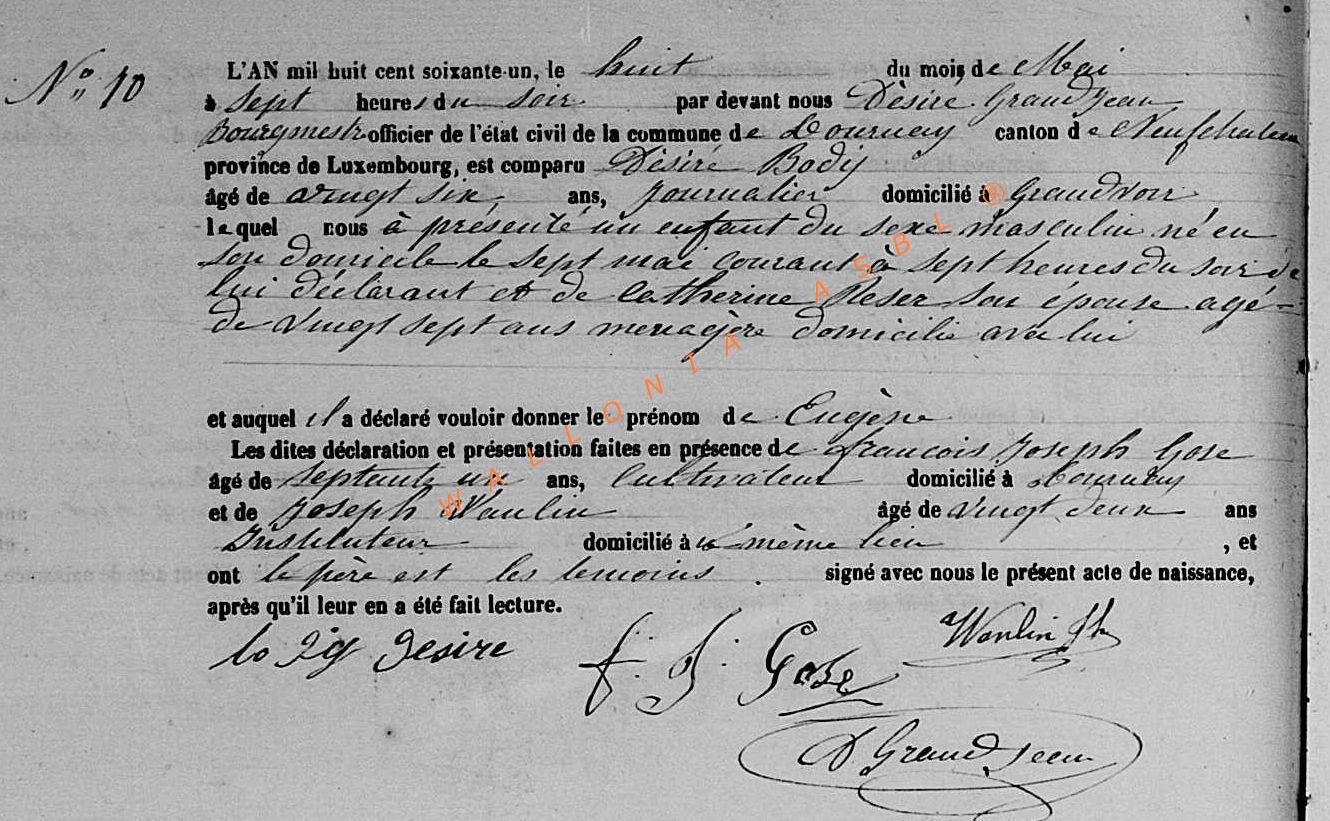 N° 10
L'AN mil huit cent soixante-un, le huit du mois de Mai
à Sept heures du soir par devant nous Dèsiré Grandjean
Bourgmestr officier de l'état civil de la commune de Tournay canton de Neufchateau
province de Luxembourg, est comparu Dèsiré Body
âgé de vingt six ans, journalier domicilié à Grandvoir
lequel nous à présenté un enfant du sexe masculin né en
son domicile le sept mai courant à sept heures du soir de
lui déclarant et de Catherine Reser son épouse agé
de vingt sept ans menagère domicilié avec lui
et auquel il a déclaré vouloir donner le prénom de Eugène
Les dites déclaration et présentation faites en présence de francois Joseph Gose
âgé de septante un ans, Cultivateur domicilié à Tournay
et de Joseph Wanlin âgé de vingt deux ans
Instituteur domicilié à même lieu , et
ont le père est les temoins . signé avec nous le présent acte de naissance,
après qu'il leur en a été fait lecture.
Desire
f. J. Gose
Wanlin Jh
D Grandjean
WALLONIA ASBL ®